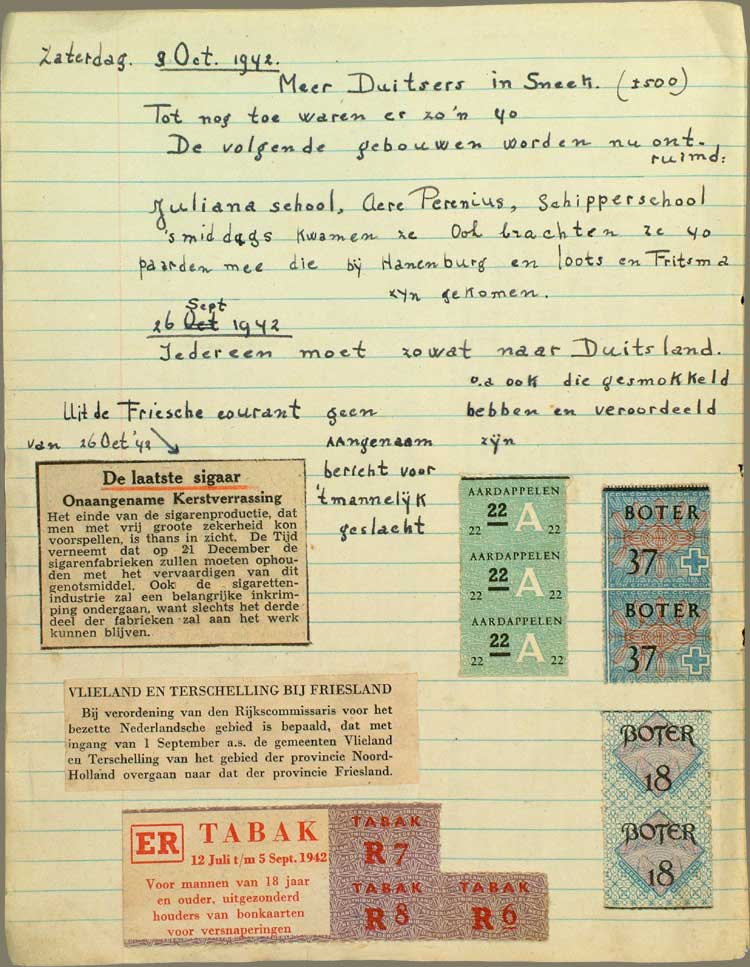 Zaterdag. 3 Oct. 1942.
Meer Duitsers in Sneek. (±500)
Tot nog toe waren er zo'n 40
De volgende gebouwen worden nu ont-
ruimd:
Juliana school, Aere Perenius, Schipperschool
's middags kwamen ze Ook brachten ze 40
paarden mee die bij Hanenburg en loots en Fritsma
zyn gekomen.
Sept
26 Oct 1942
Iedereen moet zowat naar Duitsland.
o.a ook die gesmokkeld
hebben en veroordeeld
zyn
Uit de Friesche courant
van 26 Oct '42
geen
aangenaam
bericht voor
't mannelijk
geslacht
De laatste sigaar
Onaangename Kerstverrassing
Het einde van de sigarenproductie, dat
men met vrij groote zekerheid kon
voorspellen, is thans in zicht. De Tijd
verneemt dat op 21 December de
sigarenfabrieken zullen moeten ophou-
den met het vervaardigen van dit
genotsmiddel. Ook de sigaretten-
industrie zal een belangrijke inkrim-
ping ondergaan, want slechts het derde
deel der fabrieken zal aan het werk
kunnen blijven.
AARDAPPELEN
22 22 A 22
AARDAPPELEN
22 22 A 22
AARDAPPELEN
22 22 A 22
BOTER
37
BOTER
37
VLIELAND EN TERSCHELLING BIJ FRIESLAND
Bij verordening van den Rijkscommissaris voor het
bezette Nederlandsche gebied is bepaald, dat met
ingang van 1 September a.s. de gemeenten Vlieland
en Terschelling van het gebied der provincie Noord-
Holland overgaan naar dat der provincie Friesland.
BOTER
18
BOTER
18
ER TABAK
12 Juli t/m 5 Sept. 1942
Voor mannen van 18 jaar
en ouder, uitgezonderd
houders van bonkaarten
voor versnaperingen
TABAK
R7
TABAK
R8
TABAK
R6